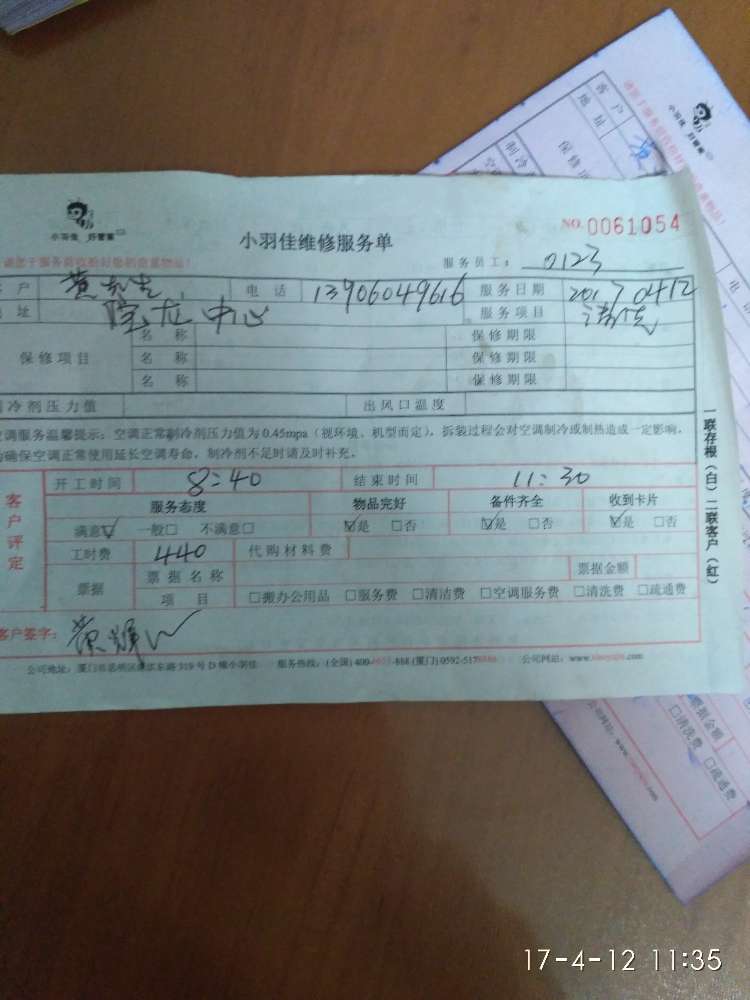 小羽佳 好管家
小羽佳维修服务单
NO. 0061054
服务员工: 0123
户 黄先生 电话 13906049616 服务日期 2017 04 12
址 宝龙中心 服务项目 清洗
保修项目 名称 保修期限
名称 保修期限
名称 保修期限
冷剂压力值 出风口温度
调服务温馨提示: 空调正常制冷剂压力值为0.45mpa(视环境、机型而定), 拆装过程会对空调制冷或制热造成一定影响,
确保空调正常使用延长空调寿命, 制冷剂不足时请及时补充。
客户评定
开工时间 8:40 结束时间 11:30
服务态度 物品完好 备件齐全 收到卡片
满意☑ 一般□ 不满意□ ☑是 □否 ☑是 □否 ☑是 □否
工时费 440 代购材料费
票据 票据名称 票据金额
项目 □搬办公用品 □服务费 □清洁费 □空调服务费 □清洗费 □疏通费
客户签字: 黄辉
公司地址: 厦门市思明区 东路319号D幢小羽佳 服务热线: (全国)400- -888 (厦门)0592-517 公司网站: www. .com
一联存根(白)二联客户(红)
小羽佳 好管家
客户
地址
保修
制冷
票据金额
□清洗费 □疏通费
公司网站: www. .com
17-4-12 11:35